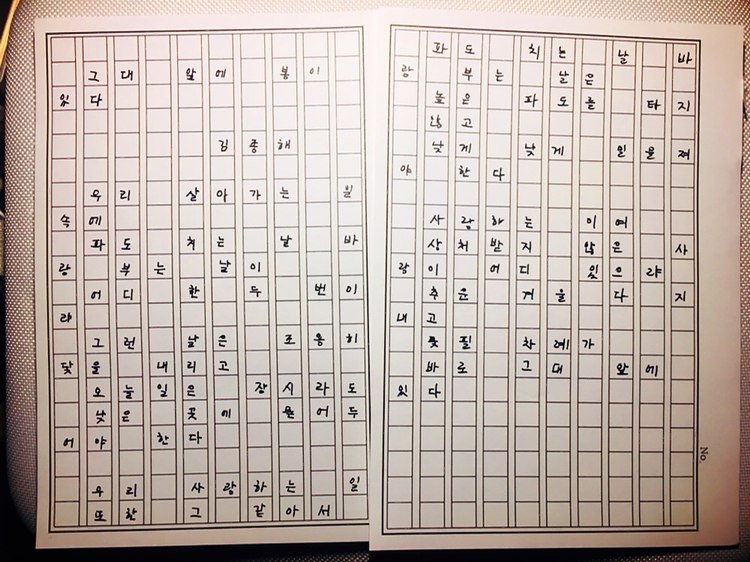 그대 앞에 봄이
있다
김종해
우리 살아가는 일
속에
파도 치는 날 바
람 부는 날이
어디 한 두 번이
랴
그런 날은 조용히
닻을 내리고
오늘일은 잠시라도
낮은 곳에 묻어두
어야 한다
우리 사랑하는 일
또한 그 같아서
파도 치는 날 바
람 부는 날은
높은 파도를 타지
않고
낮게 낮게 밀물져
야 한다
사랑하는 이여
상처받지 않은 사
람이 어디 있으랴
추운 겨울 다 지
내고
꽃필 차례가
바로 그대 앞에
있다
No.